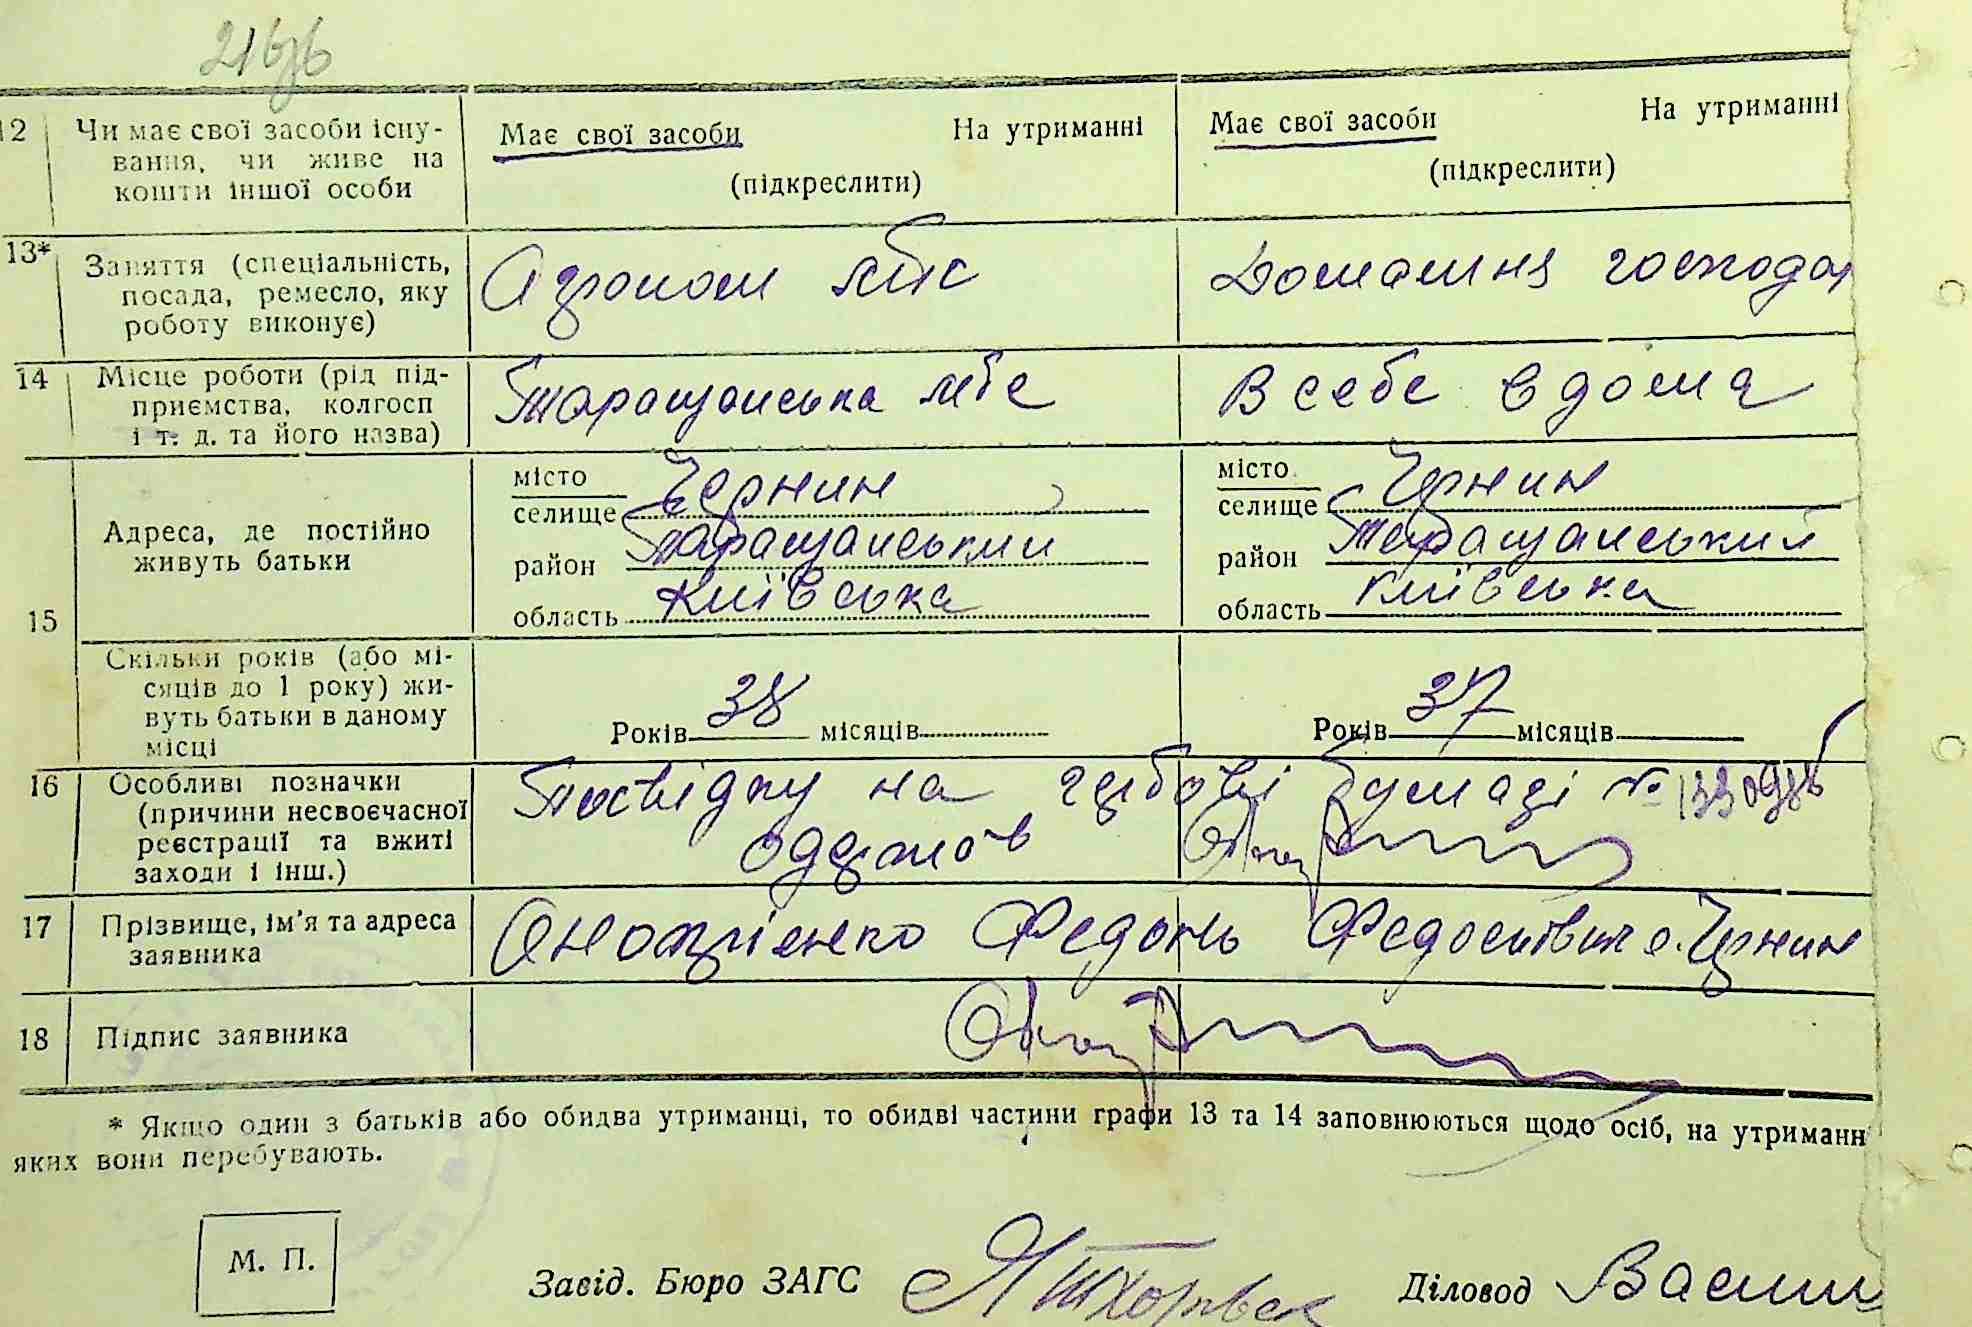 12 Чи має свої засоби існу-
вання, чи живе на
кошти іншої особи
Має свої засоби На утриманні
(підкреслити)
Має свої засоби На утриманні
(підкреслити)
13* Заняття (спеціальність,
посада, ремесло, яку
роботу виконує)
Агроном
Домашня господар
14 Місце роботи (рід під-
приємства, колгосп
і т. д. та його назва)
Таращанська
В себе вдома
15 Адреса, де постійно
живуть батьки
місто Чернин
селище
район Таращанський
область Київська
місто Чернин
селище
район Таращанський
область Київська
Скільки років (або мі-
сяців до 1 року) жи-
вуть батьки в даному
місці
Років 38 місяців
Років 37 місяців
16 Особливі позначки
(причини несвоєчасної
реєстрації та вжиті
заходи і інш.)
Посвідку на гербовій бумазі №
17 Прізвище, ім'я та адреса
заявника
Федось Федосійович с. Чернин
18 Підпис заявника
* Якщо один з батьків або обидва утриманці, то обидві частини графи 13 та 14 заповнюються щодо осіб, на утриманн
яких вони перебувають.
М. П.
Завід. Бюро ЗАГС
Діловод